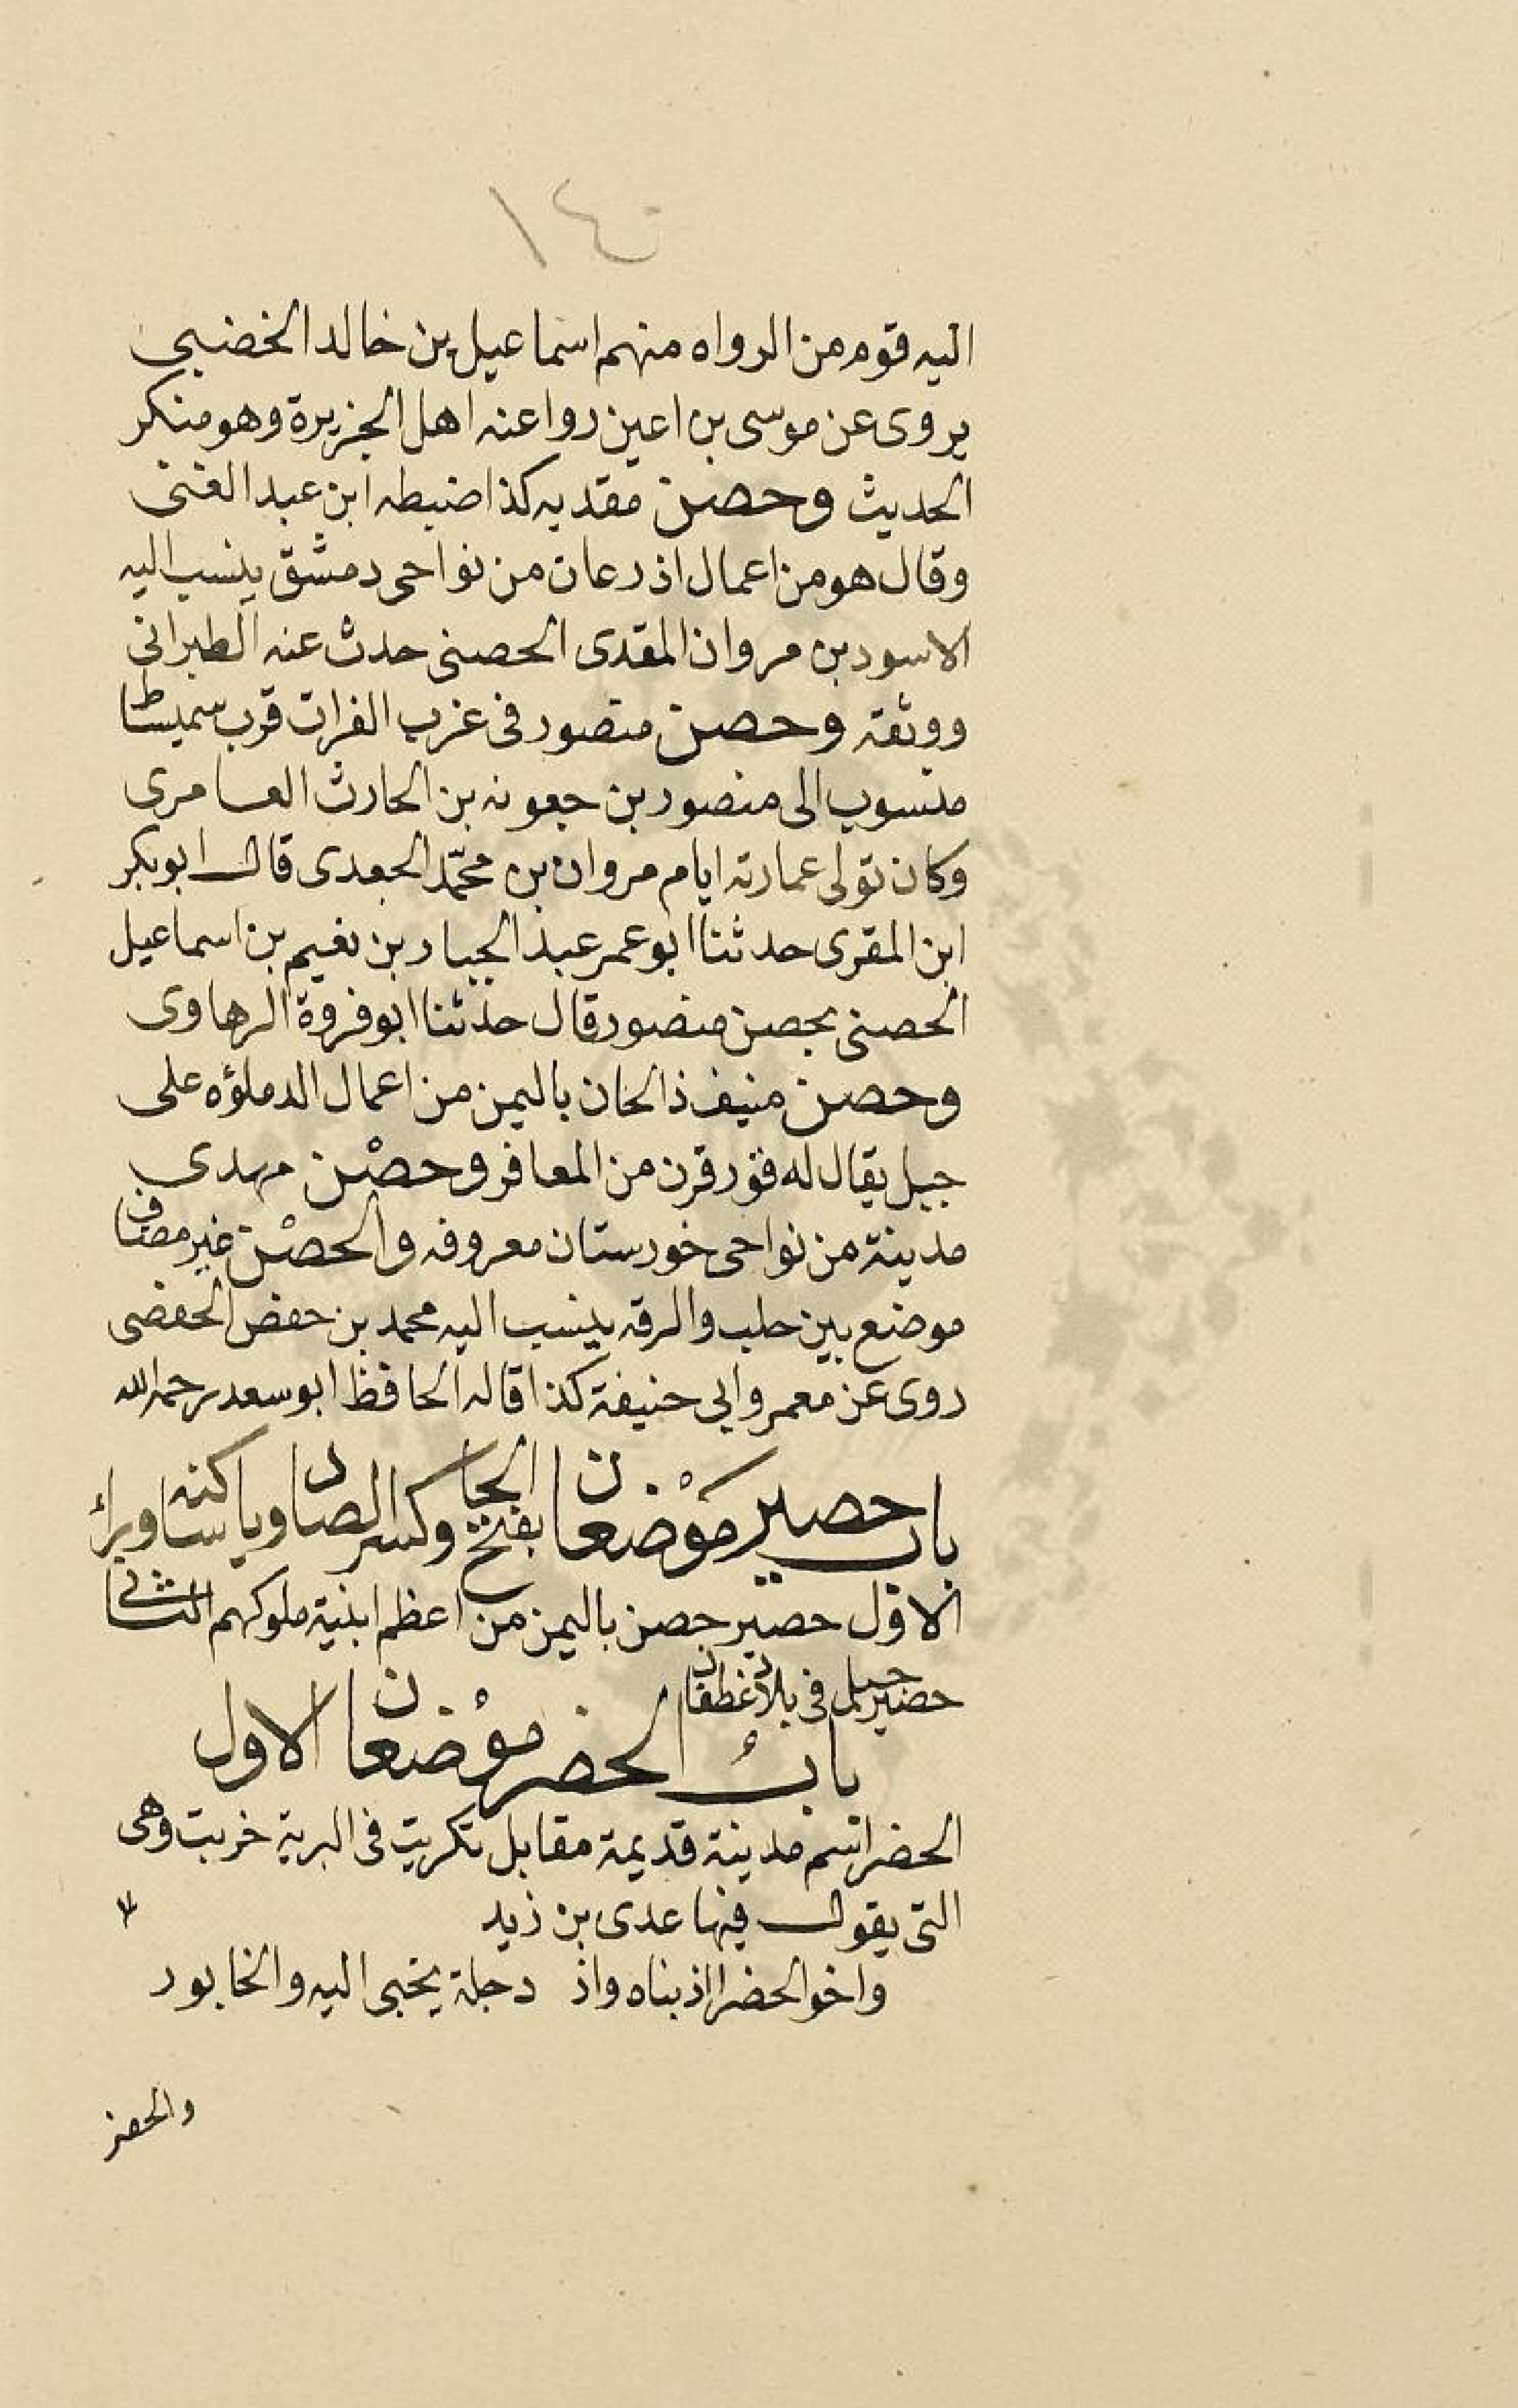 ١٤٠
اليه قوم من الرواه منهم اسماعيل بن خالد الخضبى
يروى عن موسى بن اعين روا عنه اهل الجزيرة وهو منكر
الحديث وحصن مقديه كذا ضبطه ابن عبد الغنى
وقال هو من اعمال اذرعات من نواحى دمشق ينسب اليه
الاسود بن مروان المقدى الحصنى حدث عنه الطبرانى
ووثقه وحصن منصور فى غرب الفرات قرب سميساط
منسوب الى منصور بن جعونه بن الحارث العامرى
وكان تولى عمارته ايام مروان بن محمّد الجعدى قال ابو بكر
ابن المقرى حدثنا ابو عمر عبد الجبار بن نعيم بن اسماعيل
الحصنى بحصن منصور قال حدثنا ابو فروة الرهاوى
وحصن منيف ذالحان باليمن من اعمال الدملؤه على
جبل يقال له قور قرن من المعافر وحصْن مهدى
مدينة من نواحى خورستان معروفه والحصْن غير مضاف
موضع بين حلب والرقه ينسب اليه محمد بن حفض الحفضى
روى عن معمر وابى حنيفة كذا قاله الحافظ ابو سعد رحمه الله
باب حصير موْضعان بفتح الحا وكسر الصاد ويا ساكنه وراء
الاول حصير حصن باليمن من اعظم ابنية ملوكهم الثانى
حضير جبل فى بلاد غطفان
بابُ الحضر موْضعان الاول
الحضر اسم مدينة قديمة مقابل تكريت فى البرية خربت وهى
التى يقول فيها عدى بن زيد
واخو الحضر اذ بناه واذ دجلة يجبى اليه والخابور
والحضر